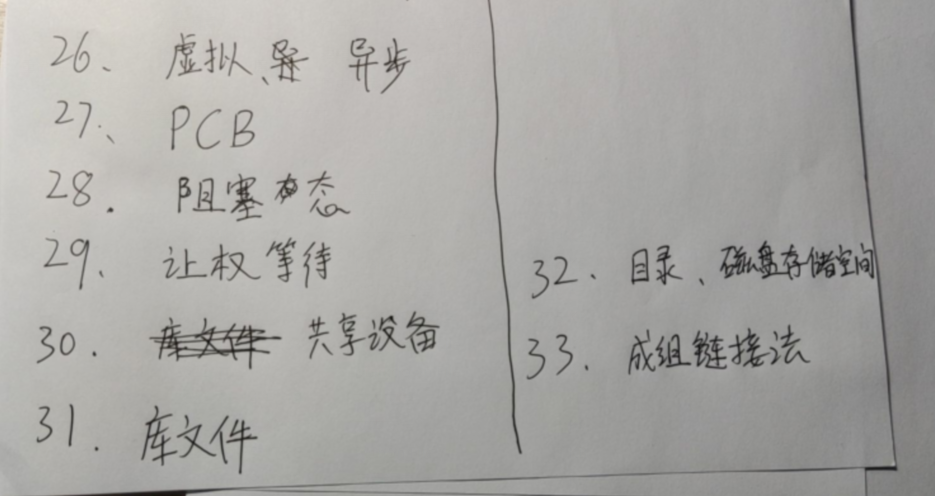 26、虚拟、异步
27、PCB
28. 阻塞态
29、让权等待
30. 共享设备
31. 库文件
32、目录、磁盘存储空间
33、成组链接法